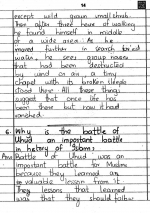 14
except wild group small shrub.
Then after three hours of walking
he found himself in middle
of a wide area. As he
moved further in search for lost
water, he sees group houses
that had been destructed
by wind on on a time
chapel with its broken steeple
stood there. All these things
suggest that once life has
been there but now it had
vanished.
6. Why is the battle of
Uhud an important battle
in history of Islam?
Ans Battle of Uhud was an
important battle for Muslims
because they learned an
valuable lesson from it.
The lessons that learned
was that they should follow